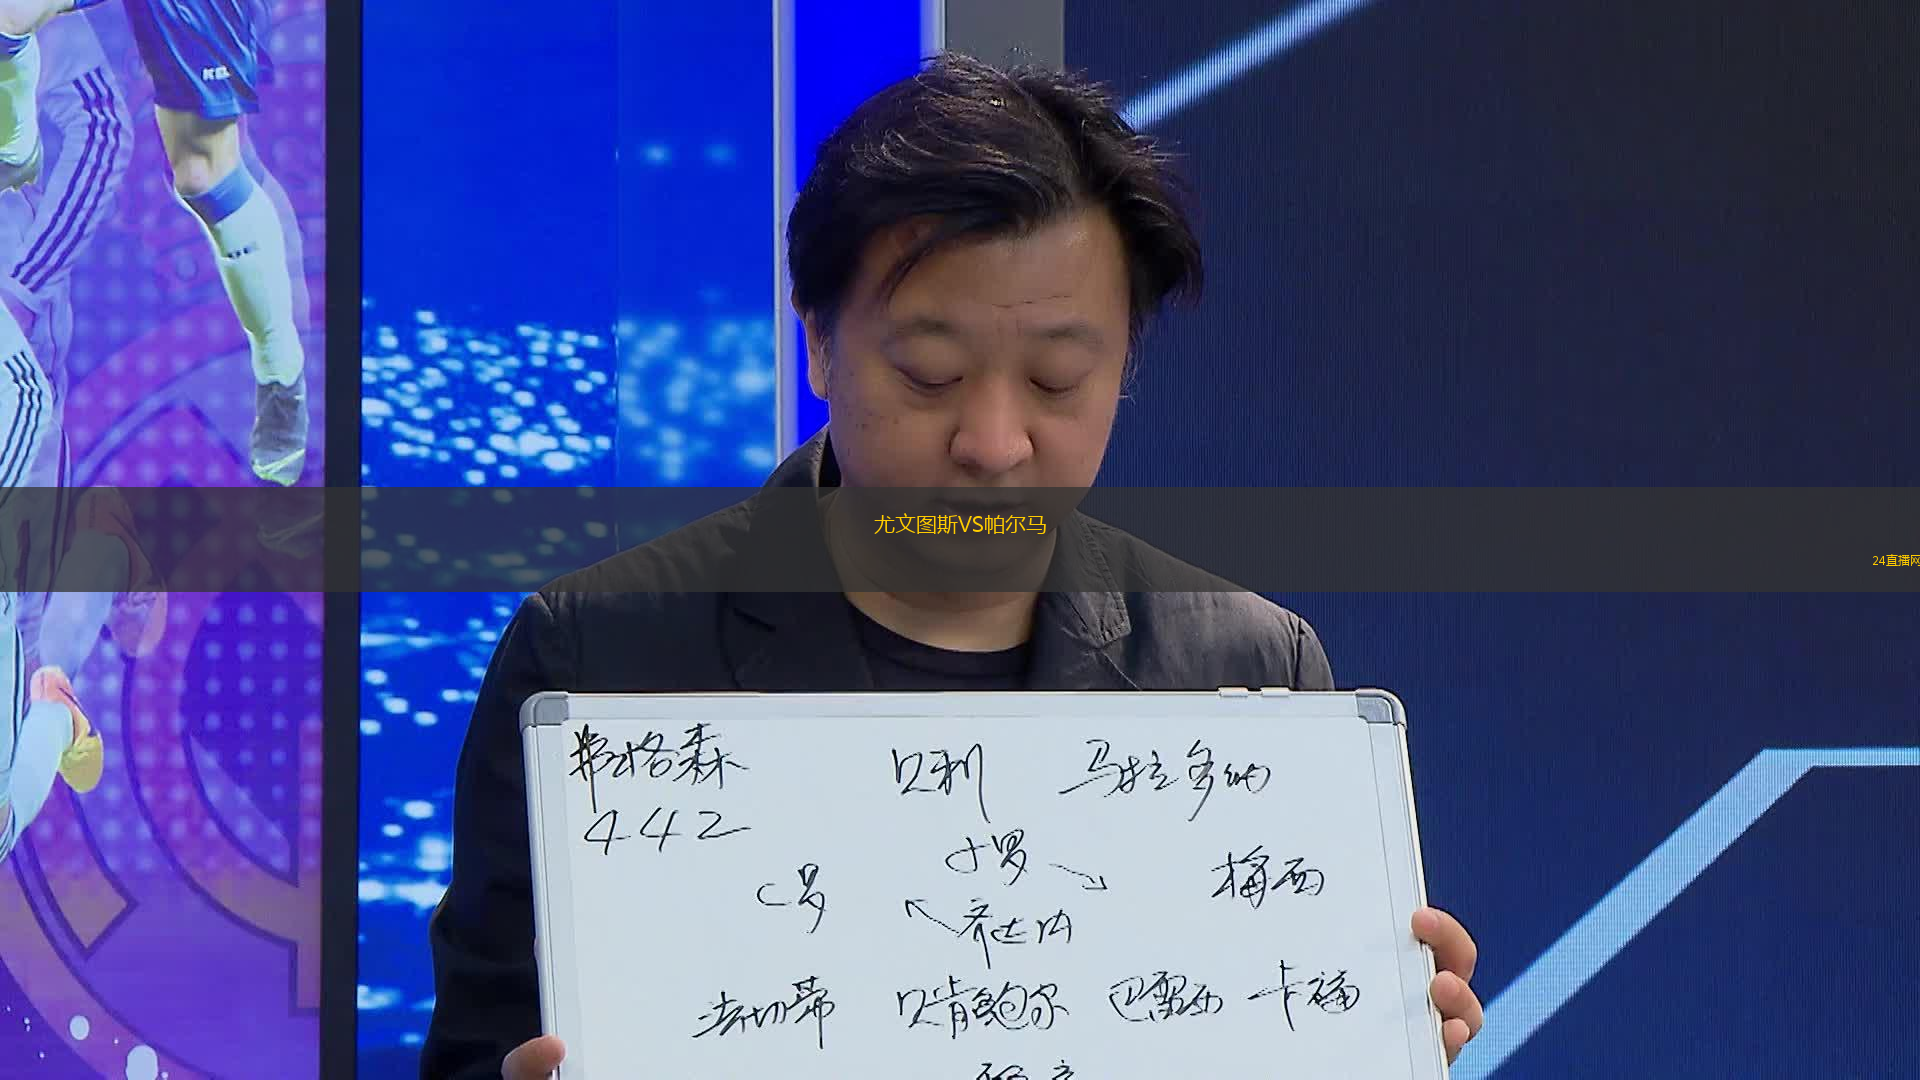 KEL
尤文图斯VS帕尔马
24直播网
弗格森 贝利 马拉多纳
442
小罗
C罗 梅西
齐达内
法切蒂 贝肯鲍尔 巴雷西 卡福